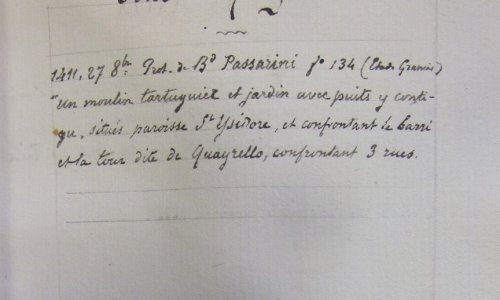 1411, 27 8bre Prot. de Bd Passarini fo 134 (Etude Granier)
"Un moulin tartuguier et jardin avec puits y conti-
gu, situés paroisse St Ysidore, et confrontant le barri
et la tour dite de Quayrello, confrontant 3 rues.